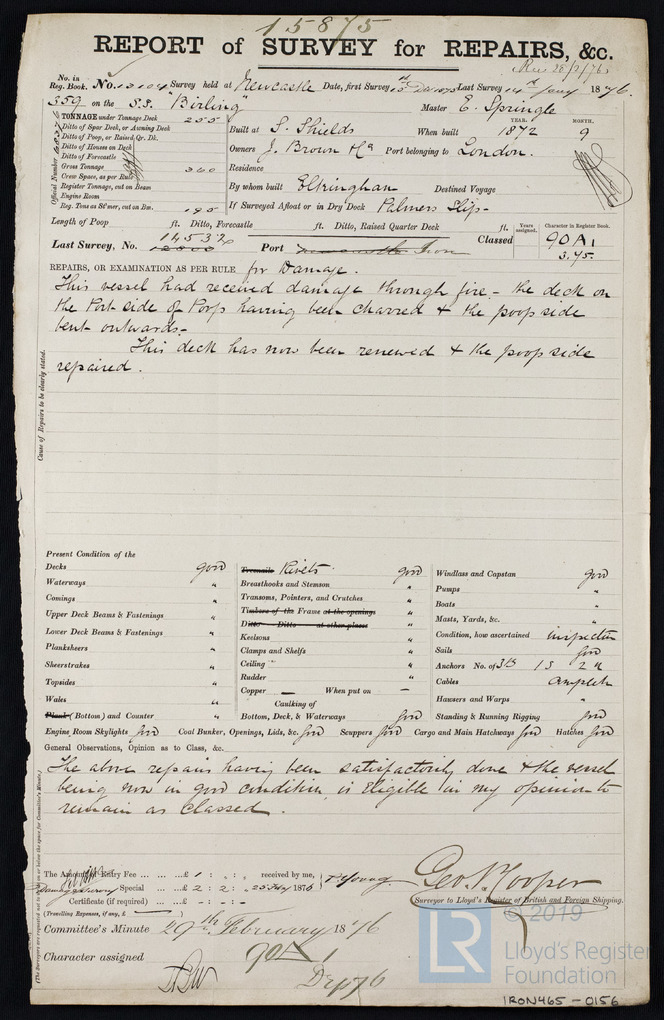 15875
REPORT of SURVEY for REPAIRS, &c.
Rec 28/2/76
No. in Reg. Book. No. 13104 Survey held at Newcastle Date, first Survey 10th Dec 1875 Last Survey 14th Jany 1876.
359 on the S.S. "Birling" Master E. Springle
TONNAGE under Tonnage Deck 255
Ditto of Spar Deck, or Awning Deck
Ditto of Poop, or Raised Qr. Dk.
Ditto of Houses on Deck
Ditto of Forecastle
Gross Tonnage 300
Crew Space, as per Rule
Register Tonnage, cut on Beam
Engine Room
Reg. Tons as St'mer, cut on Bm. 195
Official Number
YEAR. MONTH.
Built at S. Shields When built 1872 9
Owners J. Brown & Co Port belonging to London.
Residence
By whom built Eltringham Destined Voyage
If Surveyed Afloat or in Dry Dock Palmers Slip.
Length of Poop ft. Ditto, Forecastle ft. Ditto, Raised Quarter Deck ft.
14532
Last Survey, No. Port Iron Classed
Years assigned. Character in Register Book.
90A1
3.75.
REPAIRS, OR EXAMINATION AS PER RULE for Damage.
This vessel had received damage through fire - the deck on
the Port side of Poop having been charred & the poop side
bent outwards.-
This deck has now been renewed & the poop side
repaired.
Cause of Repairs to be clearly stated.
Present Condition of the
Decks good
Waterways "
Comings "
Upper Deck Beams & Fastenings "
Lower Deck Beams & Fastenings "
Planksheers "
Sheerstrakes "
Topsides "
Wales "
Plank (Bottom) and Counter "
Treenails Rivets good
Breasthooks and Stemson "
Transoms, Pointers, and Crutches "
Timbers of the Frame at the openings "
Ditto Ditto at other places "
Keelsons "
Clamps and Shelfs "
Ceiling "
Rudder "
Copper — When put on —
Caulking of
Bottom, Deck, & Waterways good
Windlass and Capstan good
Pumps "
Boats "
Masts, Yards, &c. "
Condition, how ascertained inspection
Sails good
Anchors No. of 3B 1S 2K
Cables complete
Hawsers and Warps "
Standing & Running Rigging good
Engine Room Skylights good Coal Bunker, Openings, Lids, &c. good Scuppers good Cargo and Main Hatchways good Hatches good
General Observations, Opinion as to Class, &c.
The above repairs having been satisfactorily done & the vessel
being now in good condition, is Eligible in my opinion to
remain as classed.
The Amount of Entry Fee ... £1 : : received by me,
Damage Survey Special ... £2 : 2 : 25 Feby 1876 Young
Certificate (if required) ... £ - : - : -
(Travelling Expenses, if any, £ )
Geo. N. Cooper
Surveyor to Lloyd's Register of British and Foreign Shipping.
Committee's Minute 29th February 1876
Character assigned 90A1
Dep 76
(The Surveyors are requested not to write on or below the space for Committee's Minute.)
© 2019
LR Lloyd's Register Foundation
IRON465-0156